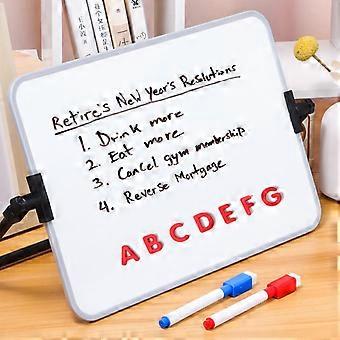 Retire's New Year's Resolutions
1. Drink more
2. Eat more
3. Cancel gym membership
4. Reverse Mortgage
ABCDEFG